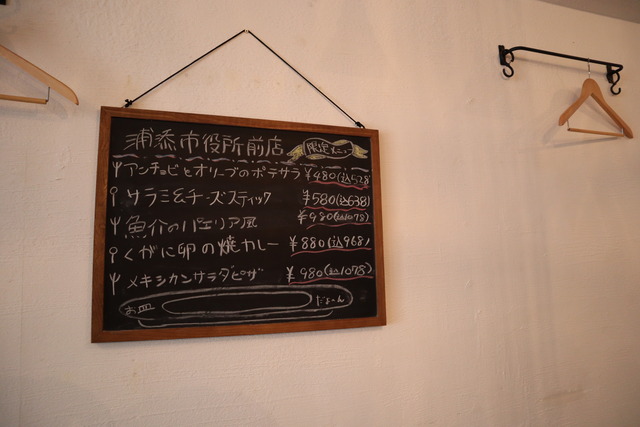 浦添市役所前店 限定メニュー
アンチョビとオリーブのポテサラ ¥480(込528
サラミ&チーズスティック ¥580(込638)
魚介のパエリア風 ¥980(込1078)
くがに卵の焼カレー ¥880(込968)
メキシカンサラダピザ ¥980(込1078)
お皿 だよーん